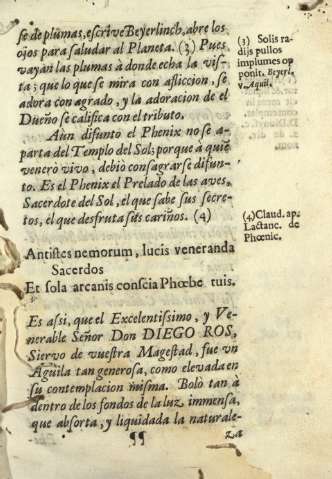 se de plumas, escrive Beyerlinch, abre los
ojos para saludar al Planeta. (3) Pues
vayan las plumas à donde echa la vis-
ta; que lo que se mira con afliccion, se
adora con agrado, y la adoracion de el
Dueño se califica con el tributo.
Aun difunto el Phenix no se a-
parta del Templo del Sol; porque a quiē
venerò vivo, debiò consagrarse difun-
to. Es el Phenix el Prelado de las aves,
Sacerdote del Sol, el que sabe sus secre-
tos, el que desfruta sus cariños. (4)
Antistes nemorum, lucis veneranda
Sacerdos
Et sola arcanis conscia Phœbe tuis.
Es assi, que el Excelentissimo, y Ve-
nerable Señor Don DIEGO ROS,
Siervo de vuestra Magestad, fue vn
Aguila tan generosa, como elevada en
su contemplacion misma. Bolò tan à
dentro de los fondos de la luz, immensa,
que absorta, y liquidada la naturale-
¶¶
za
(3) Solis ra-
dijs pullos
implumes op
ponit. Beyerl.
v. Aquil.
(4) Claud. ap.
Lactanc. de
Phœnic.